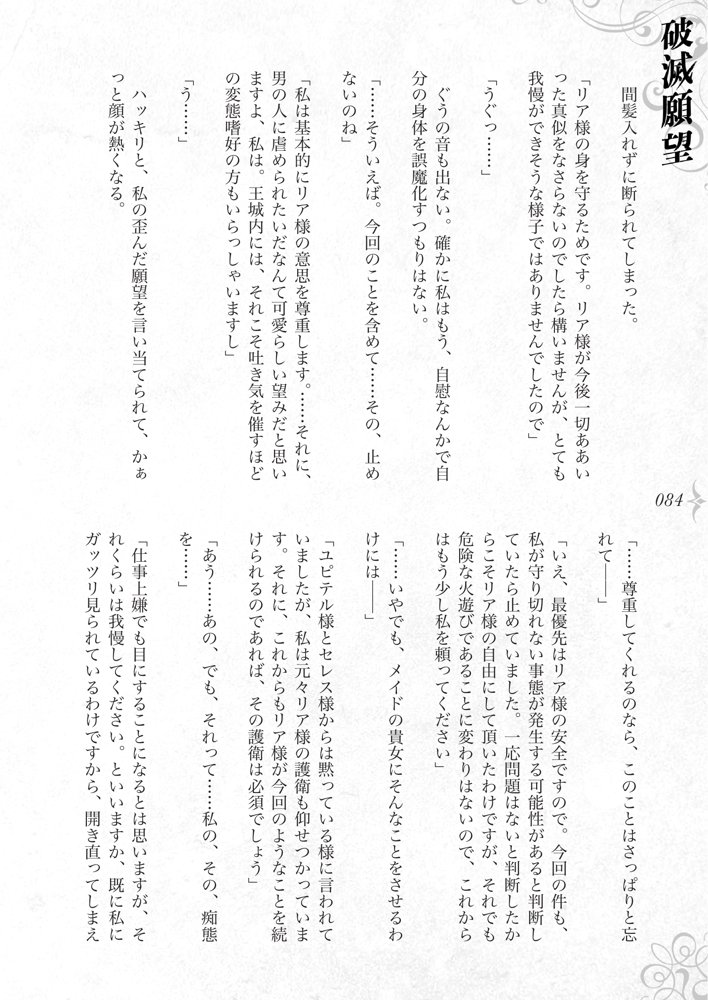 破滅願望
間髪入れずに断られてしまった。
「リア様の身を守るためです。リア様が今後一切ああい
った真似をなさらないのでしたら構いませんが、とても
我慢ができそうな様子ではありませんでしたので」
「うぐっ……」
ぐうの音も出ない。確かに私はもう、自慰なんかで自
分の身体を誤魔化すつもりはない。
「……そういえば。今回のことを含めて……その、止め
ないのね」
「私は基本的にリア様の意思を尊重します。……それに、
男の人に虐められたいだなんて可愛らしい望みだと思い
ますよ、私は。王城内には、それこそ吐き気を催すほど
の変態嗜好の方もいらっしゃいますし」
「う……」
ハッキリと、私の歪んだ願望を言い当てられて、かぁ
っと顔が熱くなる。
084
「……尊重してくれるのなら、このことはさっぱりと忘
れて――」
「いえ、最優先はリア様の安全ですので。今回の件も、
私が守り切れない事態が発生する可能性があると判断し
ていたら止めていました。一応問題はないと判断したか
らこそリア様の自由にして頂いたわけですが、それでも
危険な火遊びであることに変わりはないので、これから
はもう少し私を頼ってください」
「……いやでも、メイドの貴女にそんなことをさせるわ
けには――」
「ユピテル様とセレス様からは黙っている様に言われて
いましたが、私は元々リア様の護衛も仰せつかっていま
す。それに、これからもリア様が今回のようなことを続
けられるのであれば、その護衛は必須でしょう」
「あう……あの、でも、それって……私の、その、痴態
を……」
「仕事上嫌でも目にすることになるとは思いますが、そ
れくらいは我慢してください。といいますか、既に私に
ガッツリ見られているわけですから、開き直ってしまえ